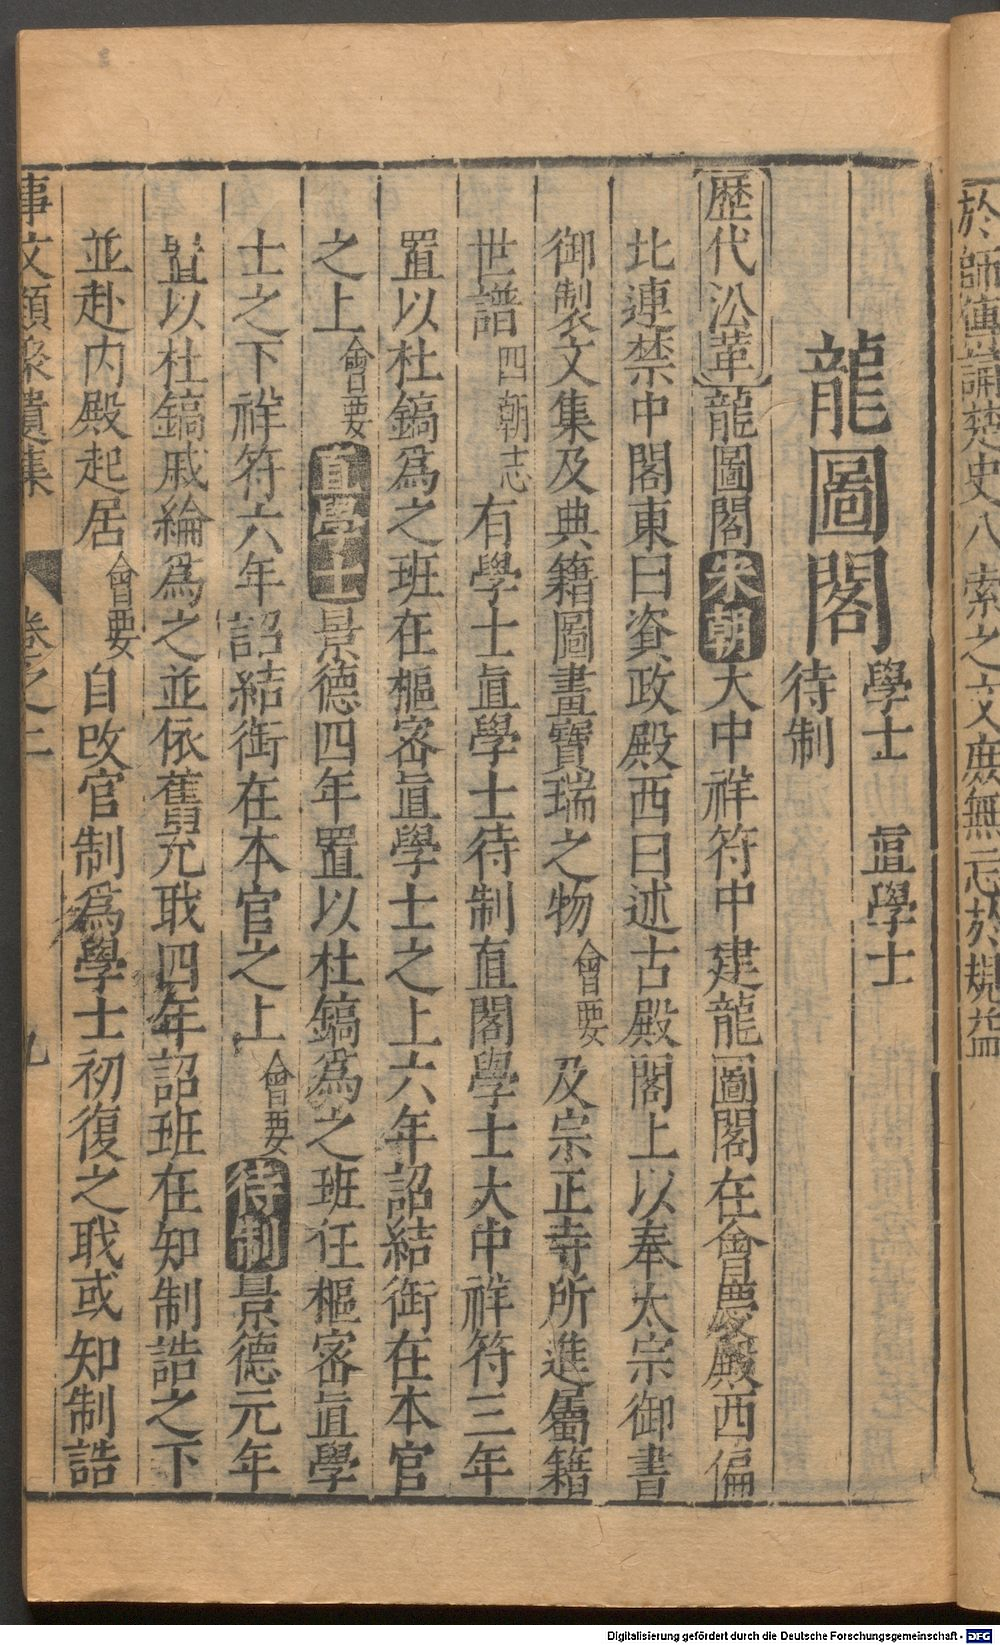 於師傅誦楚史八索之文庶無忘於規益
學士 直學士
龍圖閣
待制
歴代沿革龍圖閣宋朝大中祥符中建龍圖閣在會慶殿西偏
北連禁中閣東曰資政殿西曰述古殿閣上以奉太宗御書
御製文集及典籍圖畫寶瑞之物會要及宗正寺所進屬籍
世譜四朝志有學士直學士待制直閣學士大中祥符三年
置以杜鎬爲之班在樞密直學士之上六年詔結銜在本官
之上會要直學士景德四年置以杜鎬爲之班在樞密直學
士之下祥符六年詔結銜在本官之上會要待制景德元年
置以杜鎬戚綸爲之並依舊充職四年詔班在知制誥之下
並赴内殿起居會要自改官制爲學士初復之職或知制誥
事文類聚遺集 卷之二 九
Digitalisierung gefördert durch die Deutsche Forschungsgemeinschaft - DFG